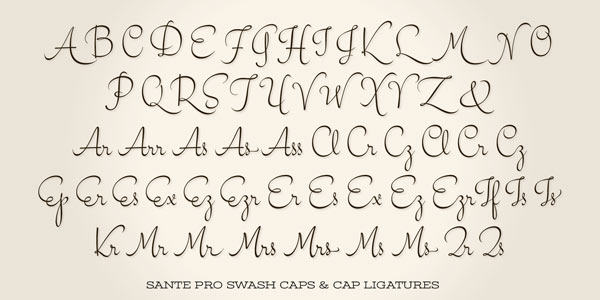 A B C D E F G H I J K L M N O
P Q R S T U V W X Y Z &
Ar Arr As As Ass Cl Cr Cz Cl Cr Cz
Ep Er Es Ex Ez Ezr Er Es Ex Ez Ezr If Is Is
Kr Mr Mr Mrs Mrs Ms Ms Qr Qs
SANTE PRO SWASH CAPS & CAP LIGATURES